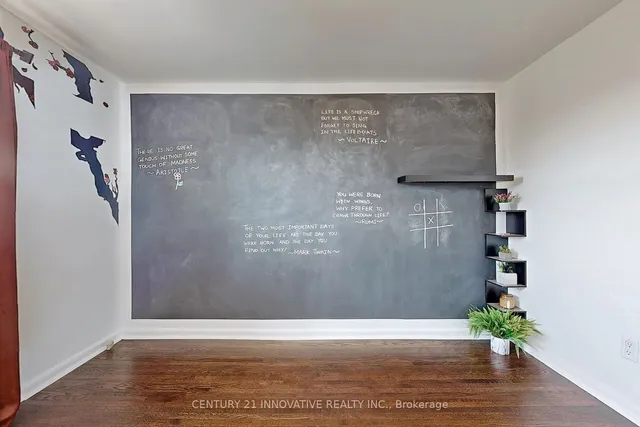 LIFE IS A SHIPWRECK
BUT WE MUST NOT
FORGET TO SING
IN THE LIFEBOATS
~ VOLTAIRE ~
THERE IS NO GREAT
GENIUS WITHOUT SOME
TOUCH OF MADNESS
~ ARISTOTLE ~
YOU WERE BORN
WITH WINGS,
WHY PREFER TO
CRAWL THROUGH LIFE?
~RUMI~
O
X
THE TWO MOST IMPORTANT DAYS
OF YOUR LIFE ARE THE DAY YOU
WERE BORN AND THE DAY YOU
FIND OUT WHY! ~MARK TWAIN~
CENTURY 21 INNOVATIVE REALTY INC., Brokerage